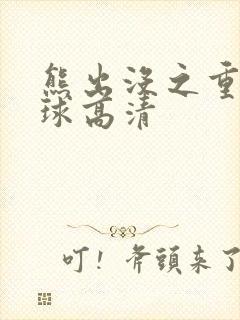 熊出没之重
球高清
叮！斧頭来了